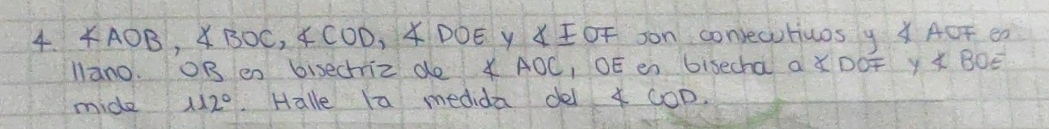 4. ∡AOB, ∡BOC, ∡COD, ∡DOE y ∡IOF son consecutivos y ∡AOF es
llano. OB es bisectriz de ∡AOC, OE es bisecha a ∡DOF y ∡BOE
mide 112°. Halle la medida del ∡COD.